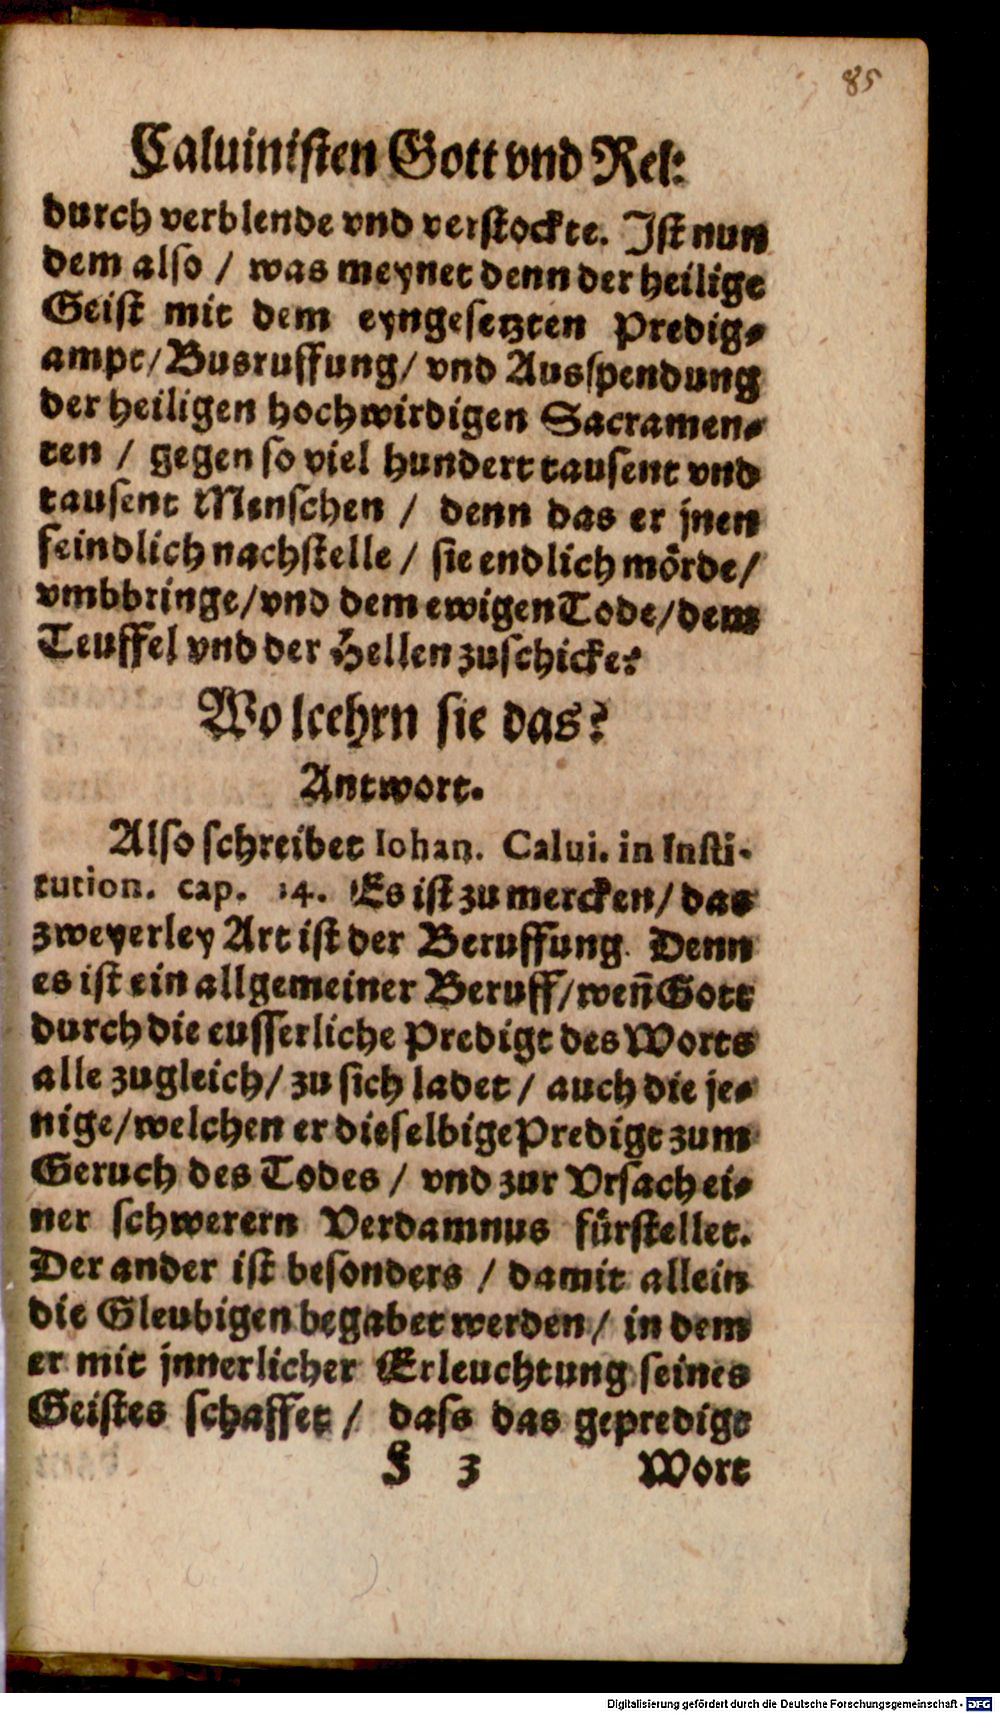 85
Caluinisten Gott vnd Rel:
durch verblende vnd verstockte. Ist nun
dem also / was meynet denn der heilige
Geist mit dem eyngesetzten Predig-
ampt/Busruffung/ vnd Ausspendung
der heiligen hochwirdigen Sacramen-
ten / gegen so viel hundert tausent vnd
tausent Menschen / denn das er jnen
feindlich nachstelle / sie endlich mörde/
vmbbringe/vnd dem ewigen Tode/dem
Teuffel vnd der Hellen zuschicke?
Wo leehrn sie das?
Antwort.
Also schreibet Iohan. Calui. in Insti-
tution. cap. 14. Es ist zu mercken/ das
zweyerley Art ist der Beruffung. Denn
es ist ein allgemeiner Beruff/ weñ Gott
durch die eusserliche Predigt des Worts
alle zugleich/ zu sich ladet / auch die je-
nige/welchen er dieselbige Predigt zum
Geruch des Todes / vnd zur Vrsach ei-
ner schwerern Verdamnus fürstellet.
Der ander ist besonders / damit allein
die Gleubigen begabet werden/ in dem
er mit jnnerlicher Erleuchtung seines
Geistes schaffet / dass das gepredigt
F 3 Wort
Digitalisierung gefördert durch die Deutsche Forschungsgemeinschaft - DFG